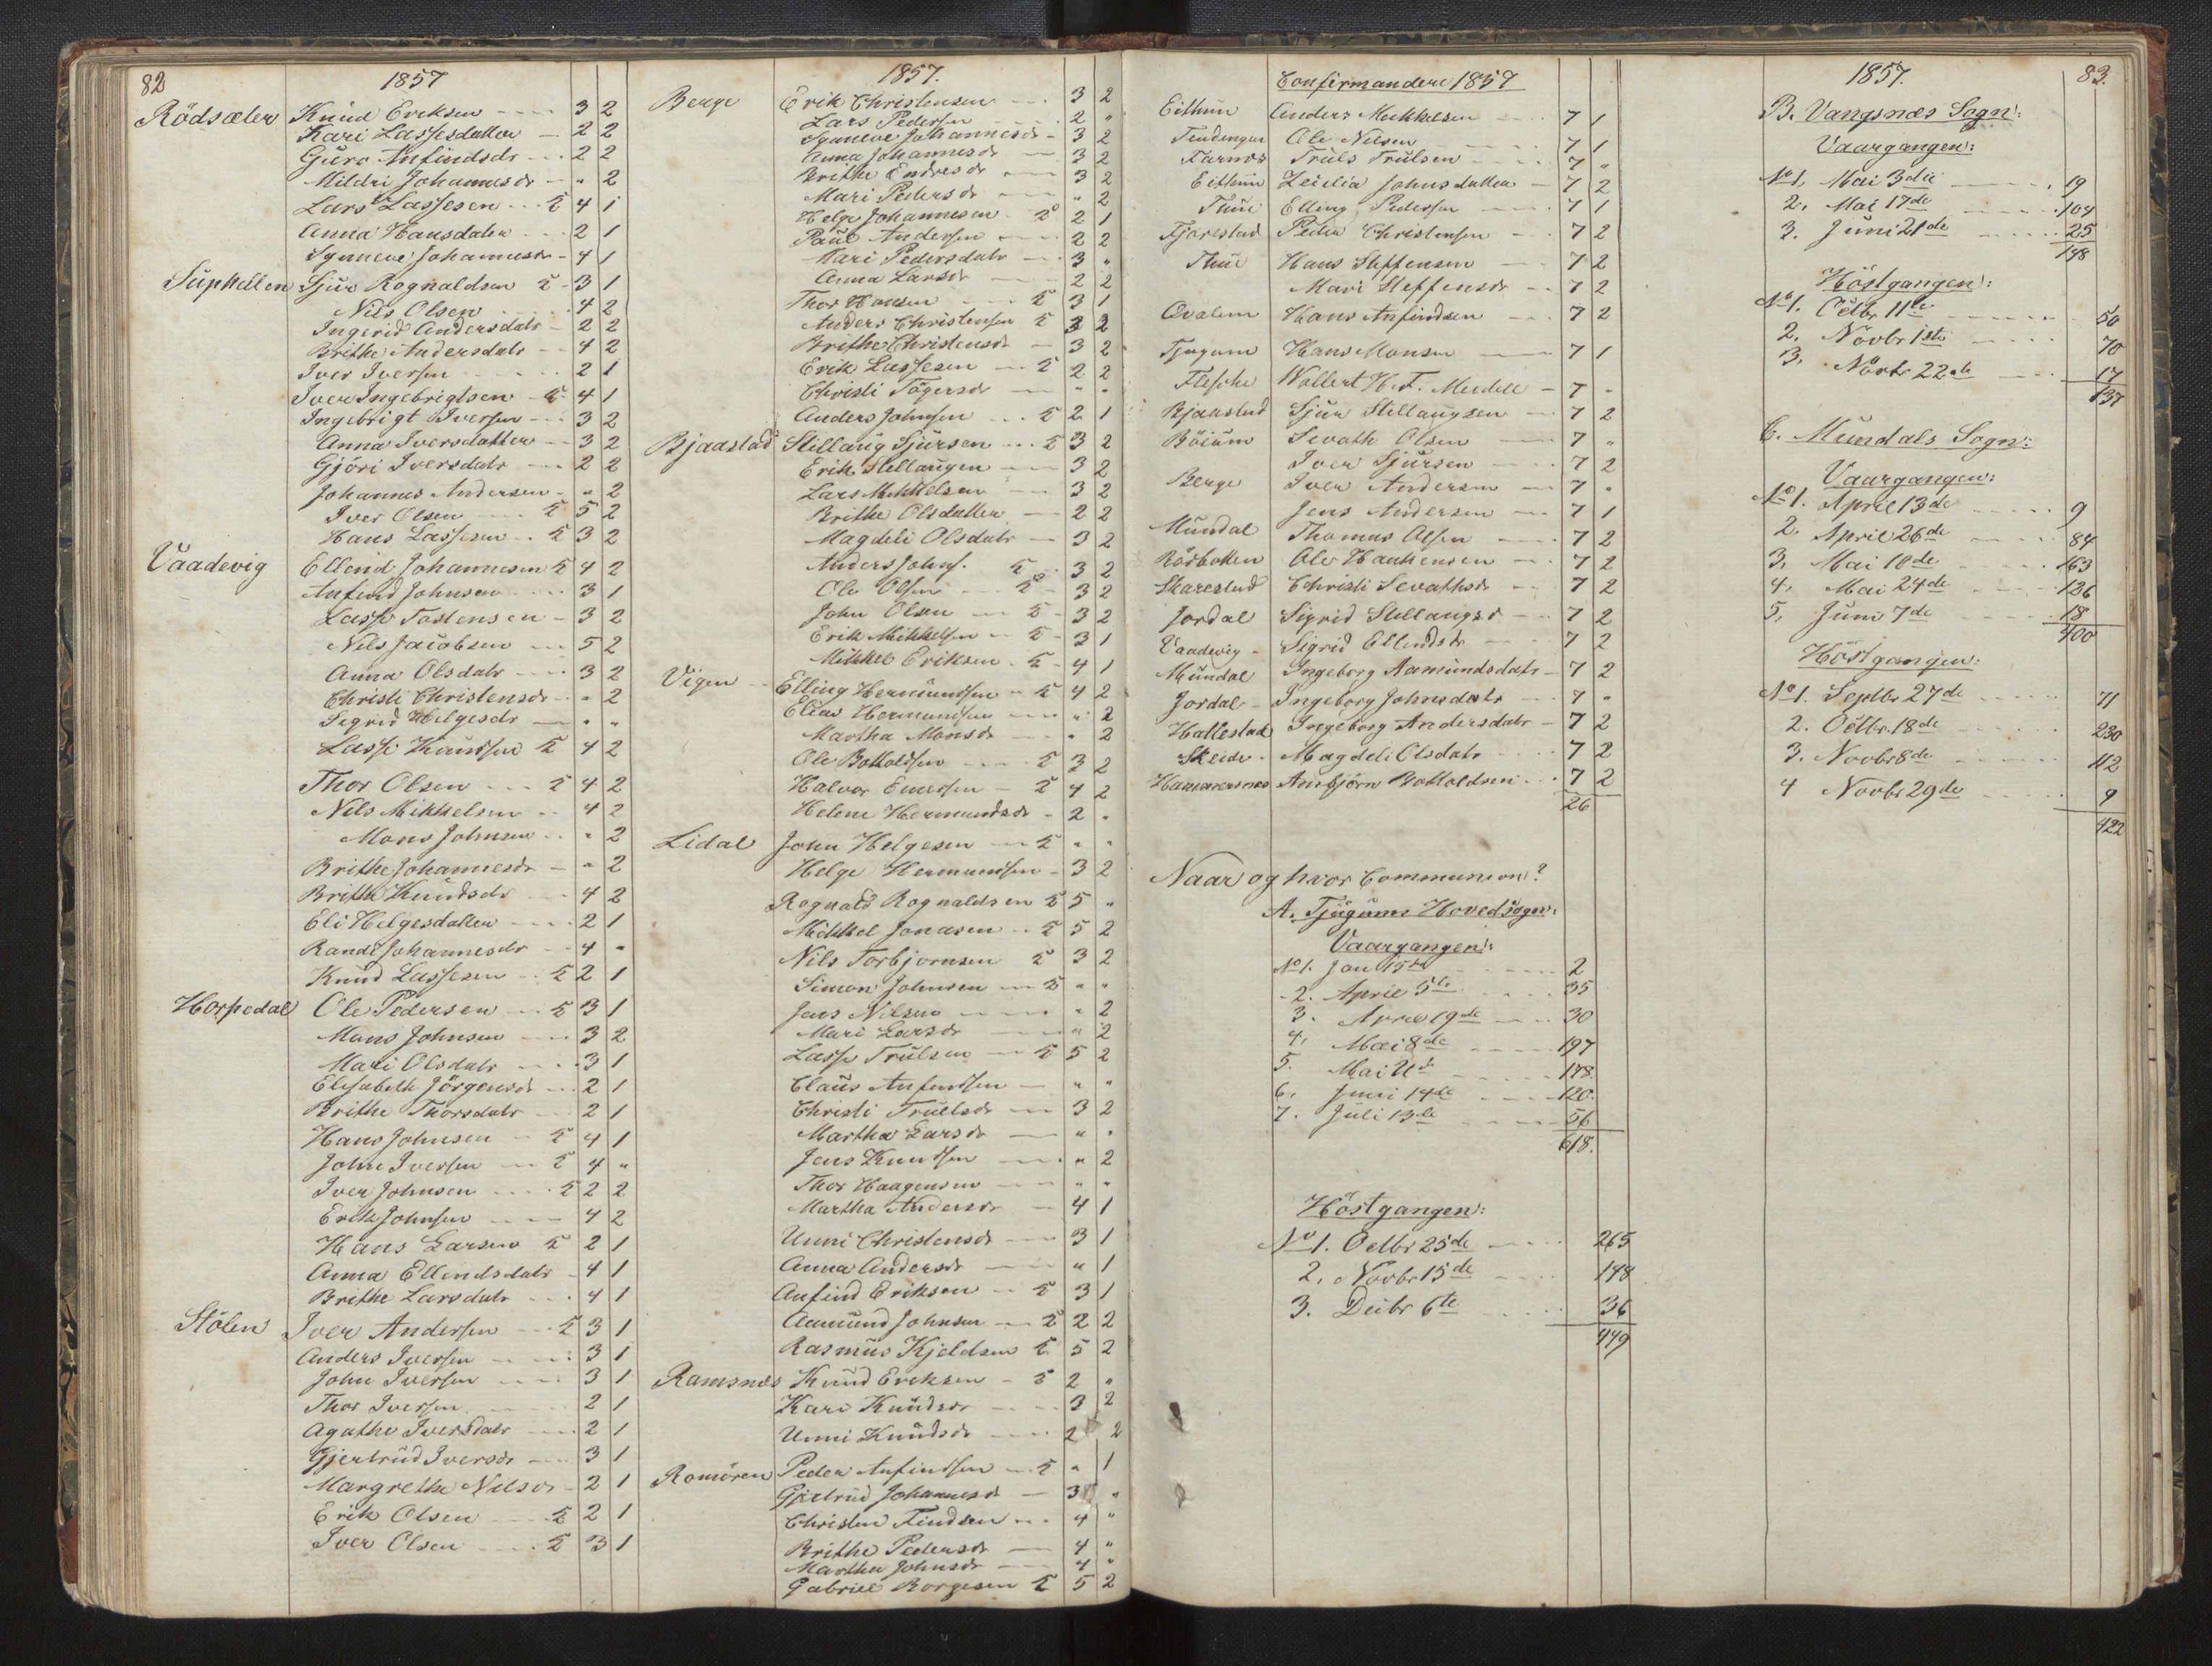 82
1857
Rödsæter Knud Eriksen 3 2
Kari Lassesdatter 2 2
Guro Anfindsdr 2 2
Mildri Johannesdr " 2
Lars Lassesen 4 1
Anna Hansdatter 2 1
Synneve Johannesdr 4 1
Suphellen Sjur Rognaldsen 3 1
Nils Olsen 4 2
Ingerid Andersdatr 2 2
Brithe Andersdatr 4 2
Iver Iversen 2 1
Iver Ingebrigtsen 4 1
Ingebrigt Iversen 3 2
Anna Iversdatter 3 2
Gjöri Iversdatr 2 2
Johannes Andersen " 2
Iver Olsen 5 2
Hans Lassesen 3 2
Vaadevig Ellend Johannesen 4 2
Anfind Johnsen 3 1
Lasse Tostensen 3 2
Nils Jacobsen 5 2
Anna Olsdatr 3 2
Christi Christensdr " 2
Sigrid Helgesdr " "
Lasse Knudsen 4 2
Thor Olsen 4 2
Nils Mikkelsen 4 2
Mons Johnsen " 2
Brithe Johannesdr " 2
Brithe Knudsdr 4 2
Eli Helgesdatter 2 1
Randi Johannesdr 4 "
Knud Lassesen 2 1
Horpedal Ole Pedersen 3 1
Mons Johnsen 3 2
Mari Olsdatr 3 1
Elisabeth Jörgensdr 2 1
Brithe Thorsdatr 2 1
Hans Johnsen 4 1
John Iversen 4 "
Iver Johnsen 2 2
Erik Johnsen 4 2
Hans Larsen 2 1
Anna Ellendsdatr 4 1
Brithe Larsdatr 4 1
Stölen Iver Andersen 3 1
Anders Iversen 3 1
John Iversen 3 1
Thor Iversen 2 1
Agathe Iversdatr 2 1
Gjertrud Iversdr 3 1
Margrethe Nilsdr 2 1
Erik Olsen 2 1
Iver Olsen 3 1
1857.
Berge Erik Christensen 3 2
Lars Pedersen 2 "
Synneve Johannesdr 3 2
Anna Johannesdr 3 2
Brithe Endresdr 3 2
Mari Pedersdr " 2
Helge Johannesen 2 1
Paul Andersen 2 2
Mari Pedersdatr 3 "
Anna Larsdr 2 2
Thor Hansen 3 1
Anders Christensen 3 2
Brithe Christensdr 3 2
Erik Lassesen 2 2
Christi Tögersdr " "
Anders Johnsen 2 1
Bjaastad Stillaug Sjursen 3 2
Erik Stellaugsen 3 2
Lars Mikkelsen 3 2
Brithe Olsdatter 2 2
Magdeli Olsdatr 3 2
Anders Johns. 3 2
Ole Olsen 3 2
John Olsen 3 2
Erik Mikkelsen 3 1
Mikkel Eriksen 4 1
Vigen Elling Hermundsen 4 2
Elias Hermundsen " 2
Martha Monsdr " 2
Ole Botholdsen 3 2
Halvor Enersen 4 2
Helene Hermundsdr 2 "
Lidal John Helgesen " "
Helge Hermundsen 3 2
Rognald Rognaldsen 5 "
Mikkel Jonasen 5 2
Nils Torbjornsen 3 2
Simon Johnsen " "
Jens Nilsen " 2
Mari Larsdr " 2
Lasse Trulsen 5 2
Claus Anfindsen " "
Christi Truelsdr 3 2
Martha Larsdr " "
Jens Knudsen " 2
Thor Haagensen " "
Martha Andersdr 4 1
Unni Christensdr 3 1
Anna Andersdr " 1
Anfind Eriksen 3 1
Aamund Johnsen 2 2
Rasmus Kjeldsen 5 2
Ramsnæs Knud Eriksen 2 "
Kari Knudsdr 3 2
Unni Knudsdr 2 2
Romören Peder Anfindsen " 1
Gjertrud Johannesd 3 "
Christen Findsen 4 "
Brithe Pedersdr 4 "
Martha Johnsdr 4 "
Gabriel Borgesen 5 2
Confirmandere 1857
Eithun Anders Mikkelsen 7 1
Tendengen Ole Nilsen 7 1
Farnes Truls Trulsen 7 "
Eithun Zecilia Johnsdatter 7 2
Thue Elling Pedersen 7 1
Fjærestad Peder Christensen 7 2
Thue Hans Steffensen 7 2
Mari Steffensdr 7 2
Qvalem Hans Anfindsen 7 2
Tjugum Hans Monsen 7 1
Flesche Wollert H. F. Meidell 7 "
Bjaastad Sjur Stellaugsen 7 2
Böium Sevath Olsen 7 "
Iver Sjursen 7 2
Berge Iver Andersen 7 "
Jens Andersen 7 1
Mundal Thomas Olsen 7 2
Rörbotten Ole Haukensen 7 2
Skarestad Christi Sevathsdr 7 2
Jordal Sigrid Stellaugsd 7 2
Vaadevig Sigrid Ellendsdr 7 2
Mundal Ingeborg Aamundsdatr 7 2
Jordal Ingeborg Johnsdatr 7 "
Hallestad Ingeborg Andersdatr 7 2
Skeide Magdeli Olsdatr 7 2
Hamarsnes Ansbjörn Botholdsen 7 2
26
Naar og hvor Communion?
A. Tjugums Hovedsogn:
Vaargangen:
No 1. Jan 15de 2
2. April 5te 35
3. April 19de 30
4. Mai 8de 197
5. Mai 21de 178
6. Juni 14de 120
7. Juli 13de 56
618.
Höstgangen:
No 1. Octbr 25de 265
2. Novbr 15de 148
3. Decbr 6te 36
449
1857.
83.
B. Vangsnæs Sogn:
Vaargangen:
No 1. Mai 3die 19
2. Mai 17de 104
3. Juni 21de 25
148
Höstgangen:
No 1. Octbr 11te 50
2. Novbr 1ste 70
3. Novbr 22de 17
137
C. Mundals Sogn:
Vaargangen:
No 1. April 13de 9
2. April 26de 84
3. Mai 10de 163
4. Mai 24de 126
5. Juni 7de 18
400
Höstgangen:
No 1. Septbr 27de 71
2. Octbr. 18de 230
3. Novbr 8de 112
4 Novbr 29de 9
422